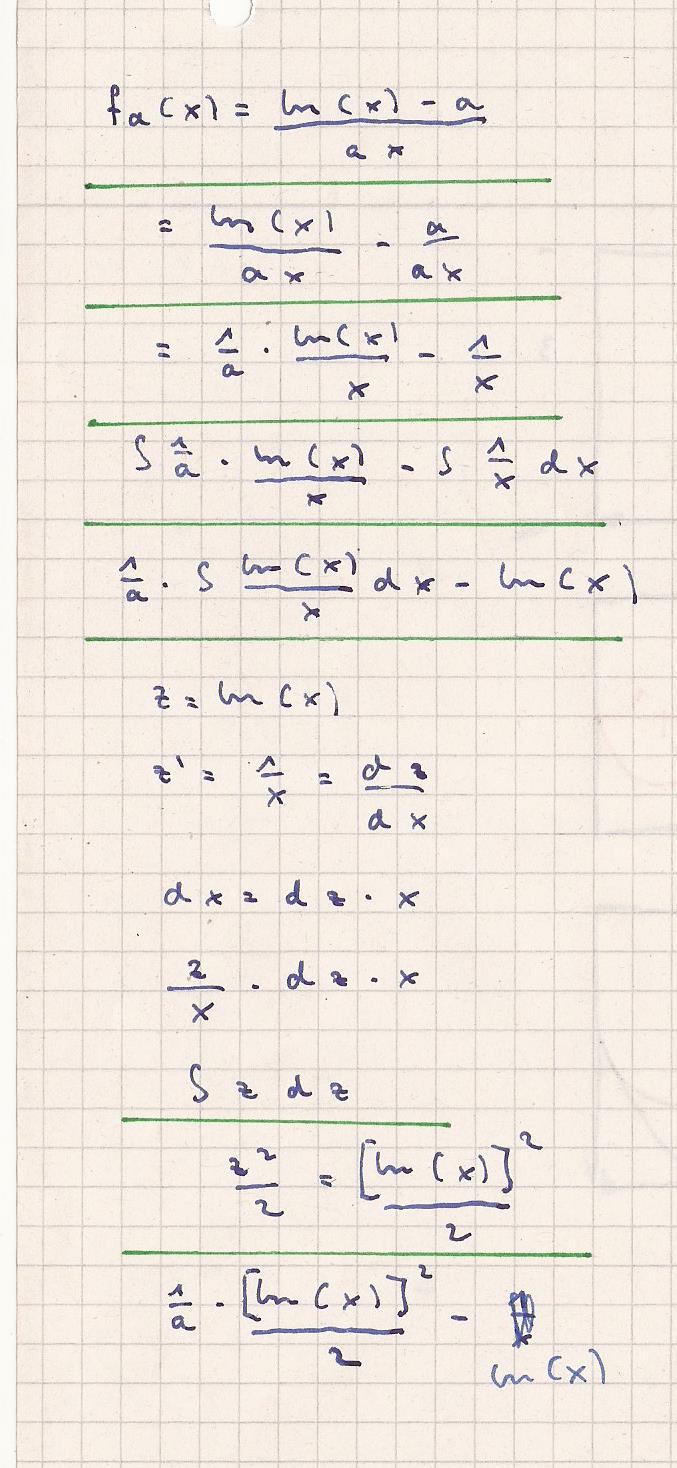 fa(x) = (ln(x) - a)/(a x)
= ln(x)/(a x) - a/(a x)
= 1/a · ln(x)/x - 1/x
∫ 1/a · ln(x)/x - ∫ 1/x dx
1/a · ∫ ln(x)/x dx - ln(x)
z = ln(x)
z' = 1/x = dz/dx
dx = dz · x
z/x · dz · x
∫ z dz
z²/2 = [ln(x)]²/2
1/a · [ln(x)]²/2 - ln(x)